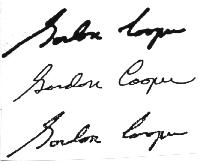 Gordon Cooper
Gordon Cooper
Gordon Cooper